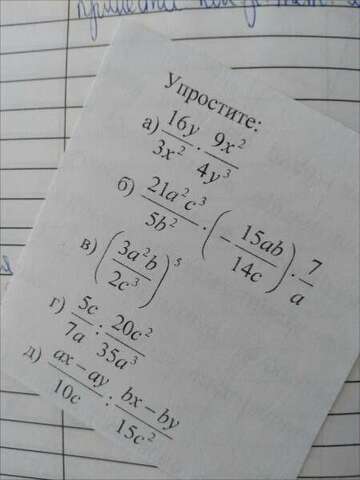 Упростите:
а) 16y/3x² · 9x²/4y³
б) 21a²c³/5b² · (−15ab/14c) · 7/a
в) (3a²b/2c³)⁵
г) 5c/7a : 20c²/35a³
д) ax − ay/10c : bx − by/15c²